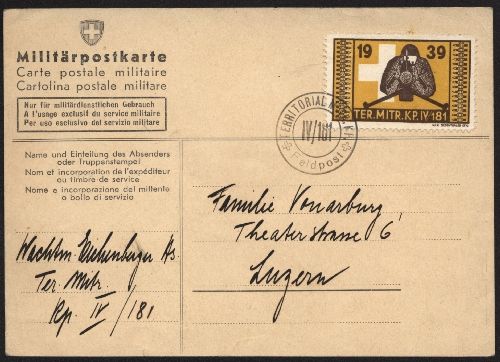 Militärpostkarte
Carte postale militaire
Cartolina postale militare
Nur für militärdienstlichen Gebrauch
A l'usage exclusif du service militaire
Per uso esclusivo del servizio militare
Name und Einteilung des Absenders
oder Truppenstempel
Nom et incorporation de l'expéditeur
ou timbre de service
Nome e incorporazione del mittente
o bollo di servizio
Wachtm. Eichenberger Hs
Ter. Mitr.
Kp. IV/181
19 39
TER. MITR. KP. IV 181
TERRITORIAL
IV/181
Feldpost
Familie Vonarburg
Theaterstrasse 6
Luzern